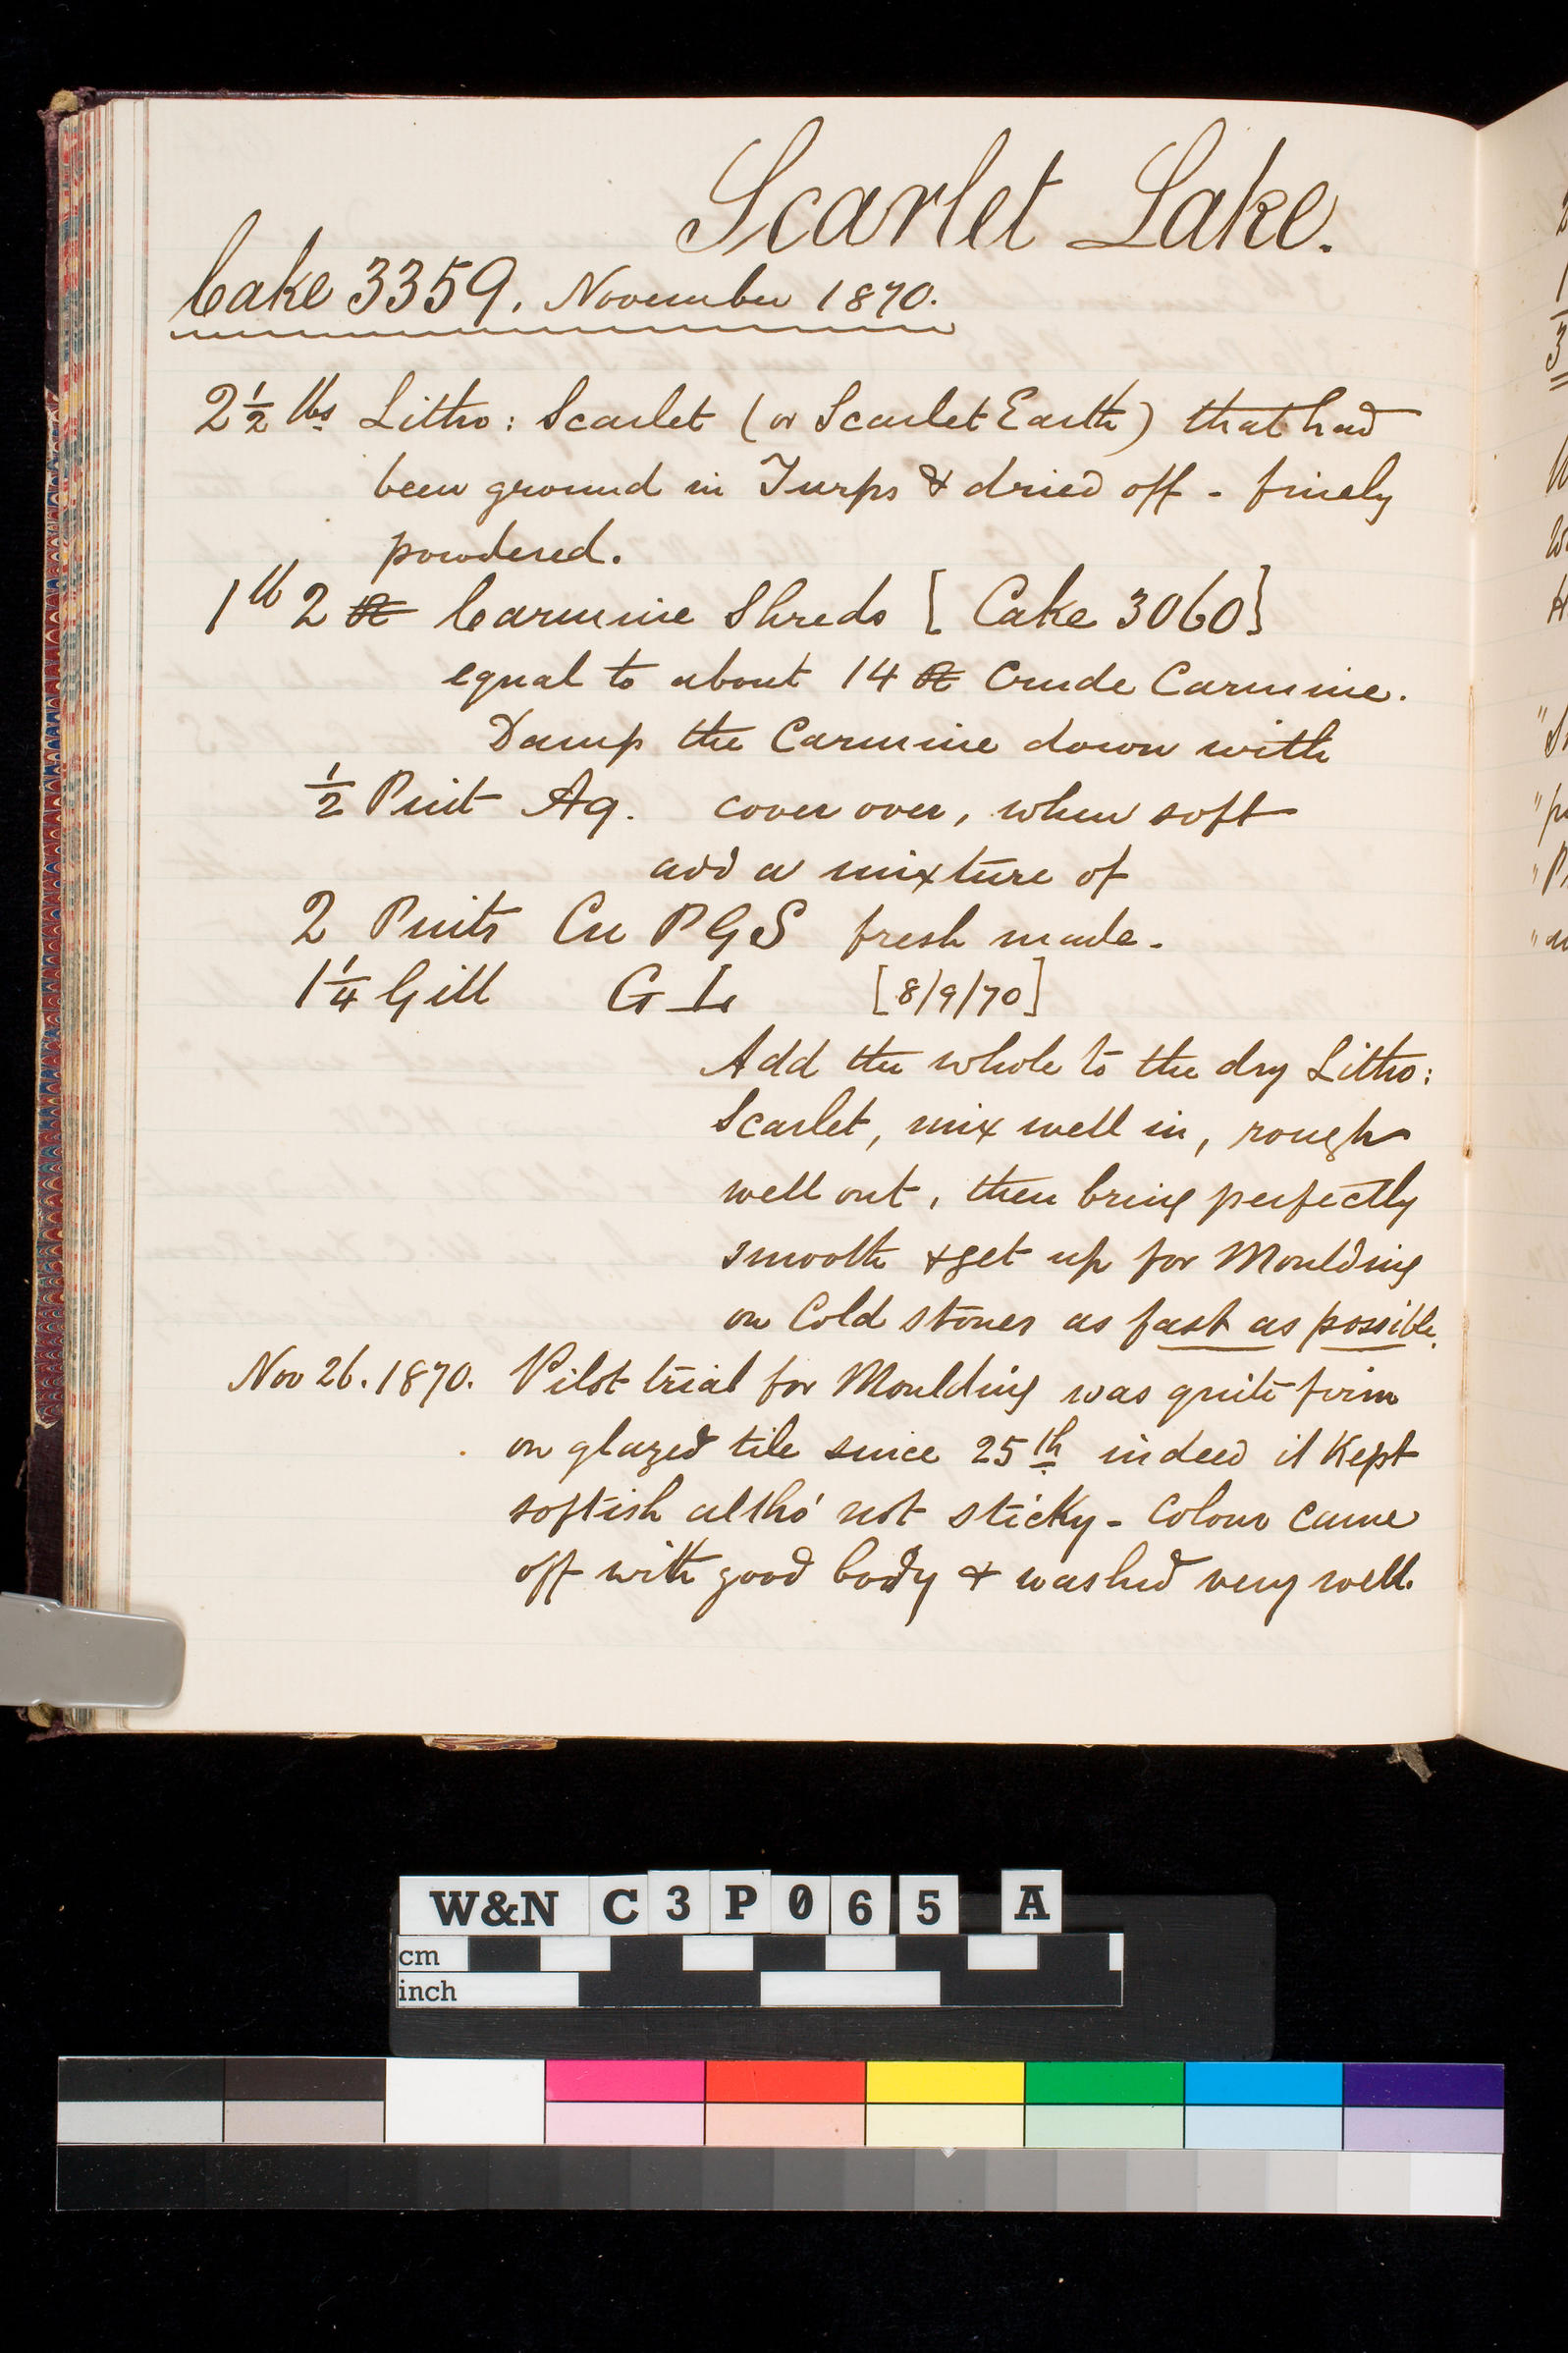 Scarlet Lake.
Cake 3359. November 1870.
2½ lbs Litho: Scarlet (or Scarlet Earth) that had
been ground in Turps & dried off - finely
powdered.
1 lb 2 Carmine Shreds [Cake 3060]
equal to about 14 Crude Carmine.
Damp the Carmine down with
½ Pint Aq. cover over, when soft
add a mixture of
2 Pints Cu P G S fresh made.
1¼ Gill G L [8/9/70]
Add the whole to the dry Litho:
Scarlet, mix well in, rough
well out, then bring perfectly
smooth & get up for Moulding
on Cold stones as fast as possible.
Nov 26. 1870. Pilot trial for Moulding was quite firm
on glazed tile since 25th indeed it Kept
softish altho' not sticky - Colour came
off with good body & washed very well.
W&N C3P065 A
cm
inch